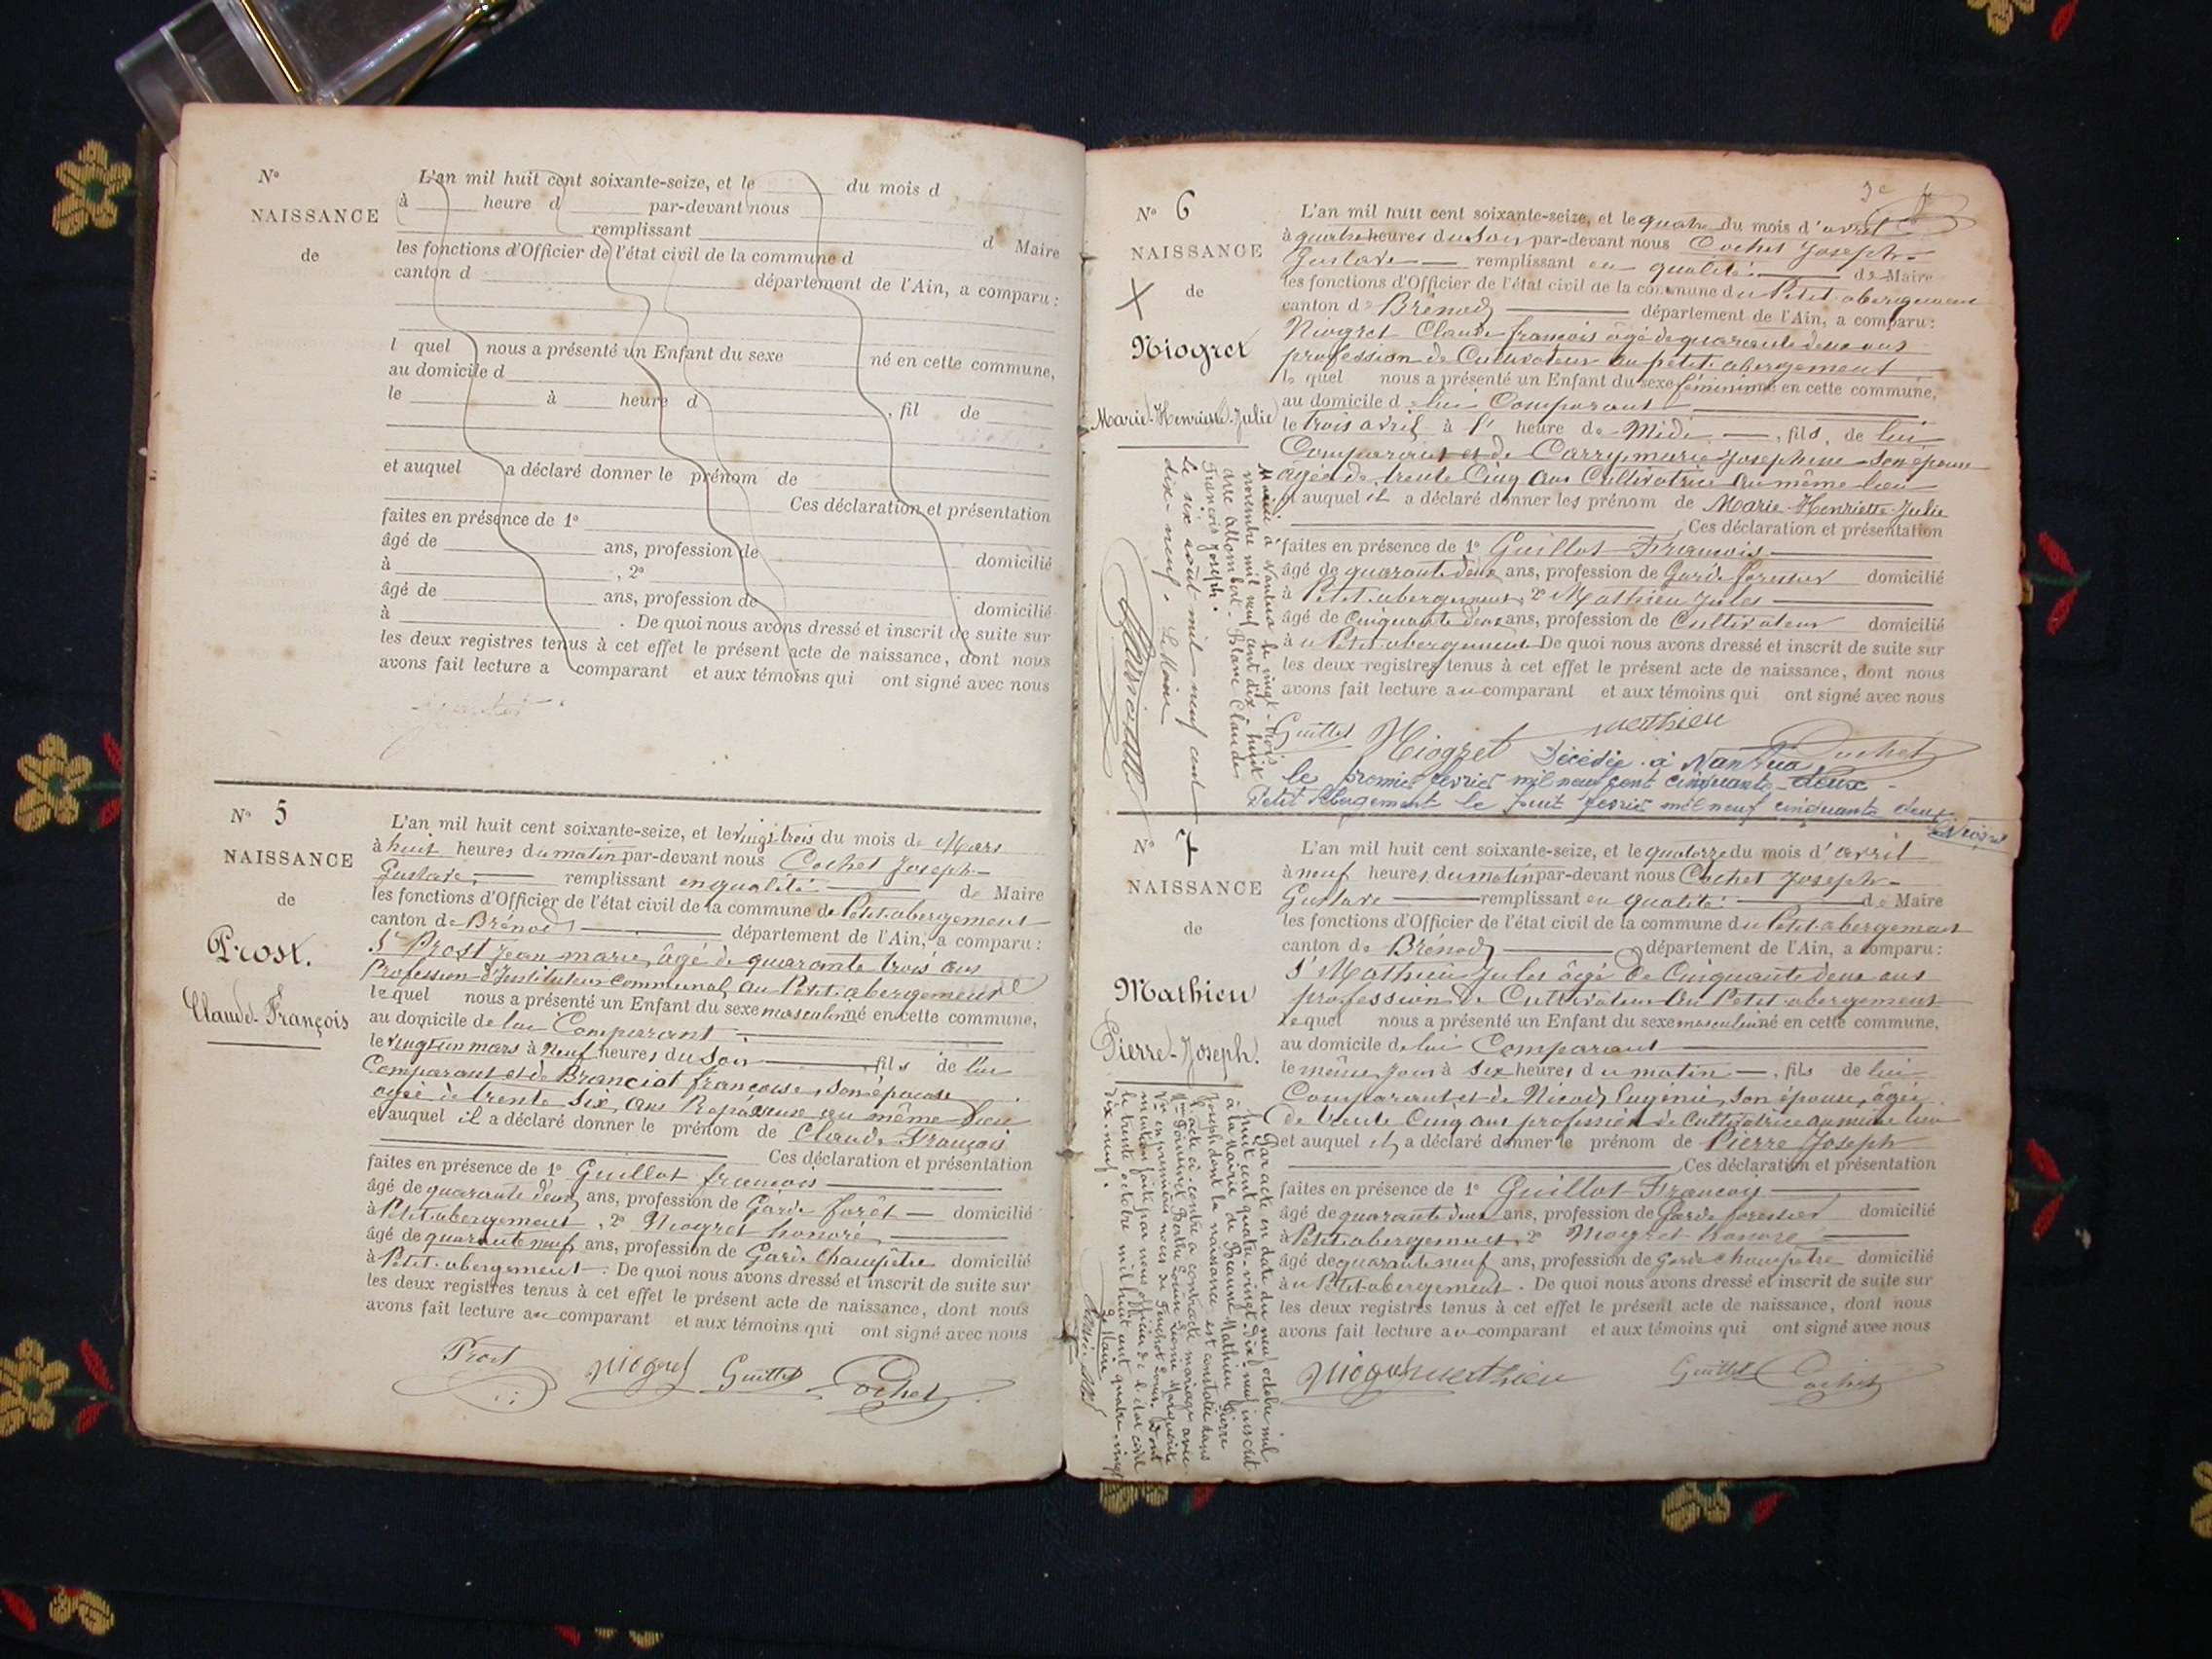 N°
NAISSANCE
de
L'an mil huit cent soixante-seize, et le du mois d
à heure d par-devant nous
remplissant d Maire
les fonctions d'Officier de l'état civil de la commune d
canton d département de l'Ain, a comparu :
l quel nous a présenté un Enfant du sexe né en cette commune,
au domicile d
le à heure d , fil de
et auquel a déclaré donner le prénom de
Ces déclaration et présentation
faites en présence de 1°
âgé de ans, profession de domicilié
à , 2°
âgé de ans, profession de domicilié
à . De quoi nous avons dressé et inscrit de suite sur
les deux registres tenus à cet effet le présent acte de naissance, dont nous
avons fait lecture a comparant et aux témoins qui ont signé avec nous
N° 5
NAISSANCE
de
Prost.
Claude-François
L'an mil huit cent soixante-seize, et le vingt trois du mois de Mars
à huit heures du matin par-devant nous Cochet Joseph-
Gustave, remplissant en qualité de Maire
les fonctions d'Officier de l'état civil de la commune de Petit-abergement
canton de Brénod département de l'Ain, a comparu :
Sr Prost Jean marie, âgé de quarante trois ans
Profession d'Instituteur Communal, au Petit-abergement
lequel nous a présenté un Enfant du sexe masculin né en cette commune,
au domicile de lui Comparant
le vingt un mars à Neuf heures du Soir , fils de lui
Comparant et de Branciat françoise, son épouse
agée de trente Six, ans au même lieu
et auquel il a déclaré donner le prénom de Claude François
Ces déclaration et présentation
faites en présence de 1° Guillot françois
âgé de quarante deux ans, profession de Garde forêt domicilié
à Petit-abergement , 2° Niogret honoré
âgé de quarante neuf ans, profession de Garde Champêtre domicilié
à Petit-abergement . De quoi nous avons dressé et inscrit de suite sur
les deux registres tenus à cet effet le présent acte de naissance, dont nous
avons fait lecture au comparant et aux témoins qui ont signé avec nous
Prost Niogret Guillot Cochet
3e
N° 6
NAISSANCE
de
Niogret
Marie-Henriette-Julie
L'an mil huit cent soixante-seize, et le quatre du mois d'avril
à quatre heures du Soir par-devant nous Cochet Joseph-
Gustave remplissant en qualité de Maire
les fonctions d'Officier de l'état civil de la commune du Petit-abergement
canton de Brénod département de l'Ain, a comparu :
Niogret Claude françois âgé de quarante deux ans
profession de Cultivateur au petit-abergement
le quel nous a présenté un Enfant du sexe féminin né en cette commune,
au domicile de lui Comparant
le trois avril à heure de Midi , fils, de lui
Comparant et de Carry marie Josephine son épouse
agée de trente Cinq ans Cultivatrice au même lieu
et auquel il a déclaré donner les prénom de Marie-Henriette-Julie
Ces déclaration et présentation
faites en présence de 1° Guillot François
âgé de quarante deux ans, profession de Garde forestier domicilié
à Petit-abergement, 2° Mathieu Jules
âgé de Cinquante deux ans, profession de Cultivateur domicilié
à u Petit-abergement De quoi nous avons dressé et inscrit de suite sur
les deux registres tenus à cet effet le présent acte de naissance, dont nous
avons fait lecture au comparant et aux témoins qui ont signé avec nous
Guillot Niogret Mathieu Cochet
Décédée à Nantua
le premier février mil neuf cent cinquante-deux-
Petit Abergement le huit février mil neuf cinquante deux
Mariée à Nantua le vingt-trois
novembre mil neuf cent dix-huit
avec Allombert-Blanc Claude
François Joseph.
Le six août mil neuf cent
dix-neuf. Le Maire
N° 7
NAISSANCE
de
Mathieu
Pierre-Joseph.
L'an mil huit cent soixante-seize, et le quatorze du mois d'avril
à neuf heures du matin par-devant nous Cochet Joseph-
Gustave remplissant en qualité de Maire
les fonctions d'Officier de l'état civil de la commune du Petit-abergement
canton de Brénod département de l'Ain, a comparu :
Sr Mathieu Jules âgé de Cinquante deux ans
profession de Cultivateur au Petit-abergement
lequel nous a présenté un Enfant du sexe masculin né en cette commune,
au domicile de lui Comparant
le même jour à six heures du matin , fils de lui
Comparant et de Nicod Eugénie, son épouse, âgée
de trente Cinq ans profession de Cultivatrice au même lieu
et auquel il a déclaré donner le prénom de Pierre Joseph
Ces déclaration et présentation
faites en présence de 1° Guillot François
âgé de quarante deux ans, profession de Garde forestier domicilié
à Petit-abergement, 2° Niogret honoré
âgé de quarante neuf ans, profession de Garde champêtre domicilié
à u Petit-abergement . De quoi nous avons dressé et inscrit de suite sur
les deux registres tenus à cet effet le présent acte de naissance, dont nous
avons fait lecture au comparant et aux témoins qui ont signé avec nous
Niogret Mathieu Guillot Cochet
Par acte en date du neuf octobre mil
huit cent quatre-vingt-dix-neuf inscrit
à la Mairie de Mathieu Pierre
Joseph dont la naissance est constatée dans
l'acte ci-contre a contracté mariage avec
Marguerite
en premières noces de Dont
mention faite par nous officier de l'état civil
le trente octobre mil huit cent quatre-vingt
dix-neuf.
Le Maire